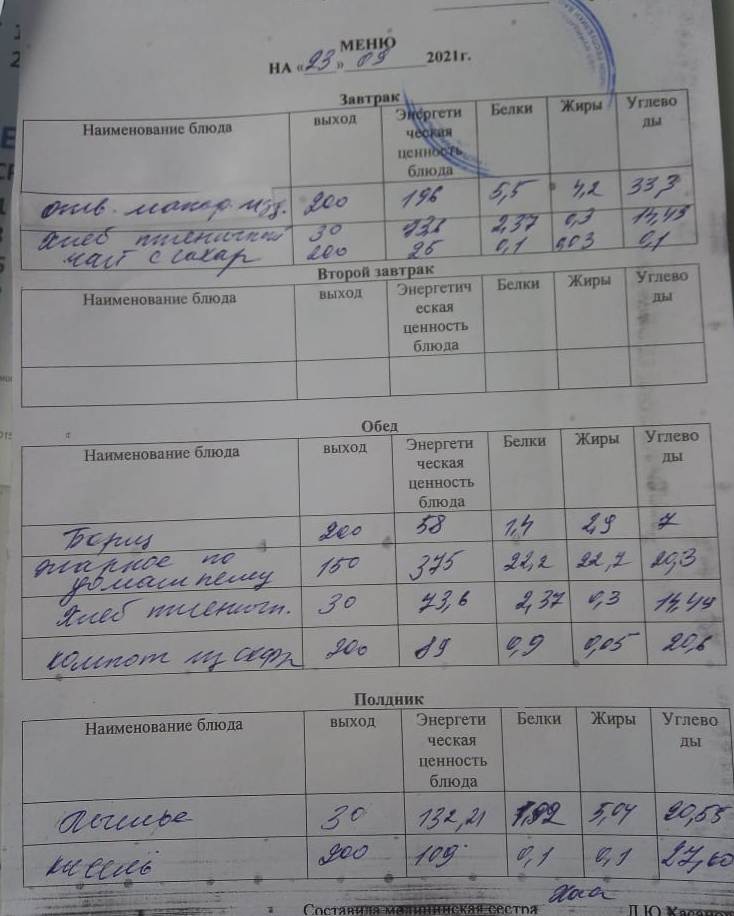 МЕНЮ
НА «23» 09 2021г.
Завтрак
Наименование блюда выход Энергети ческая ценность блюда Белки Жиры Углево ды
отв. макар. изд. 200 196 5,5 4,2 33,3
Хлеб пшеничный 30 2,37 0,3 14,49
чай с сахар 200 26 0,1 0,03 0,1
Второй завтрак
Наименование блюда выход Энергетич еская ценность блюда Белки Жиры Углево ды
Обед
Наименование блюда выход Энергети ческая ценность блюда Белки Жиры Углево ды
Борщ 200 58 1,4 2,9 7
жаркое по домашнему 150 375 22,2 22,7 20,3
Хлеб пшеничн. 30 73,6 2,37 0,3 14,49
компот из сухфр 200 89 0,9 0,05 20,6
Полдник
Наименование блюда выход Энергети ческая ценность блюда Белки Жиры Углево ды
Печенье 30 132,21 1,92 5,04 20,55
кисель 200 109 0,1 0,1 27,60
Составила медицинская сестра